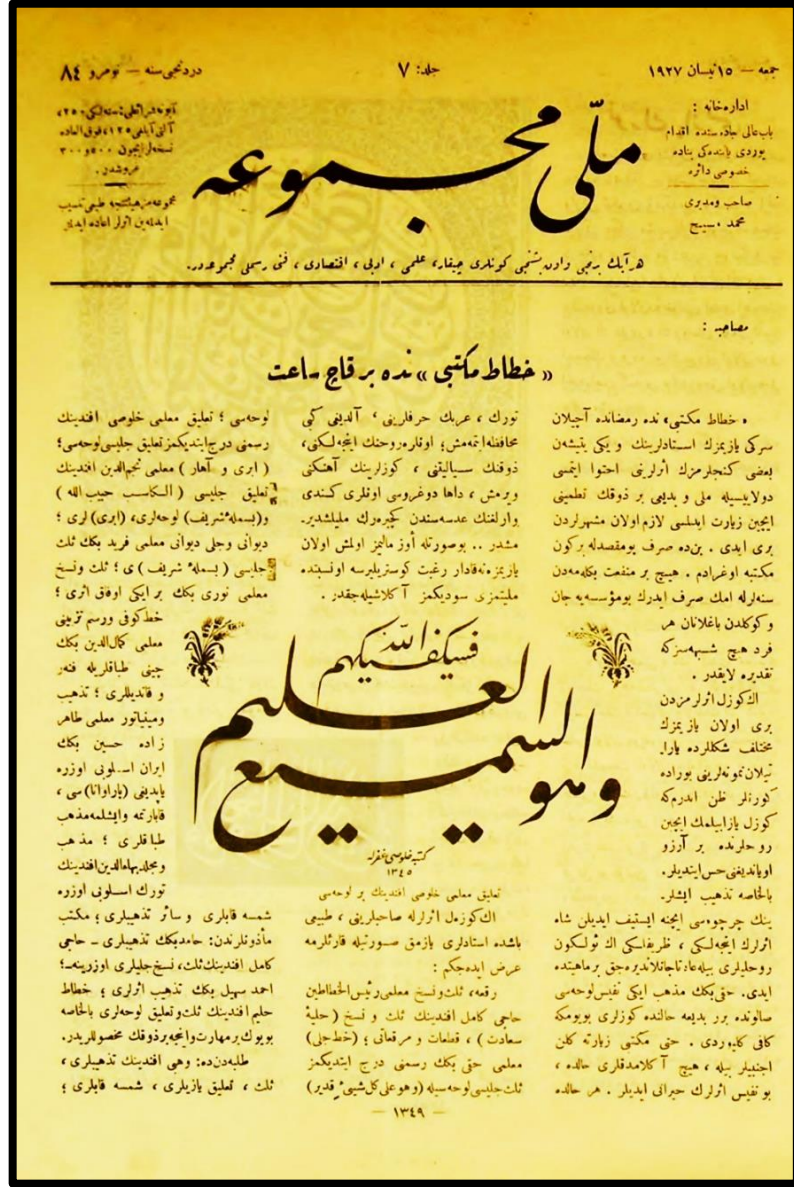 جمعه — ١٥ نيسان ١٩٢٧
جلد: ٧
دردنجى سنه — نومرو ٨٤
اداره‌خانه :
باب‌عالى جاده‌سنده اقدام
يوردى ياننده‌كى بناده
خصوصى دائره
صاحب ومديرى
محمد مسيح
ملّى مجموعه
هر آيك برنجى واون بشنجى كونلرى چيقار، علمى ، ادبى ، اقتصادى ، فنى رسملى مجموعه‌در.
مصاحبه :
« خطاط مكتبى » نده بر قاچ ساعت
« خطاط مكتبى » نده رمضانده آچيلان
سركى يازيمزك استادلرينك و يكى يتيشه‌ن
بعضى كنجلرمزك اثرلرينى احتوا ايتمسى
دولاييسيله ملى و بديعى بر ذوقك تطمينى
ايچين زيارت ايدلمسى لازم اولان مشهرلردن
برى ايدى . بن‌ده صرف بومقصدله بركون
مكتبه اوغرادم . هيچ بر منفعت بكله‌مه‌دن
سنه‌لرله امك صرف ايدرك بومؤسسه‌يه جان
و كوكلدن باغلانان هر
فرد هيچ شبهه‌سزكه
تقديره لايقدر .
اك كوزل اثرلرمزدن
برى اولان يازيمزك
مختلف شكللرده يارا-
تيلان نمونه‌لرينى بوراده
كورنلر ظن ايدرم‌كه
كوزل يازابيلمك ايچين
روحلرنده بر آرزو
اوياندیغنى حس ايتديلر.
بالخاصه تذهيب ايشلر-
ينك چرچوه‌سى ايچنه ايستيف ايديلن شاه
اثرلرك اينجه‌لكى ، ظريفلكى اك ئولكون
روحليلرى بيله عادتا جانلانديره‌جق بر ماهيتده
ايدى. حقى‌بكك مذهب ايكى نفيس لوحه‌سى
صالونده برر بديعه حالنده كوزلرى بويومكه
كافى كليوردى . حتى مكتبى زيارته كلن
اجنبيلر بيله ، هيچ آ كلامدقلرى حالده ،
بو نفيس اثرلرك حيرانى ايديلر . هر حالده
تورك ، عربك حرفلرينى ، آلدينى كبى
محافظه ايتمه‌مش؛ اونلره روحنك اينجه‌لكنى،
ذوقنك سياليتنى ، كوزلرينك آهنكنى
ويرمش ، داها دوغروسى اونلرى كندى
وارلغنك عدسه‌سندن كچيره‌رك مليلشدير-
مشدر .. بوصورتله أوز ماليمز اولمش اولان
يازيمزه نه‌قادار رغبت كوستريليرسه اونسبتده
مليتمزى سوديكمز آ كلاشيله‌جقدر .
فسيكفيكهم الله
وهو السميع العليم
كتبه خلوصى غفرله
١٣٤٥
تعليق معلمى خلوصى افندينك بر لوحه‌سى
اك كوزه‌ل اثرلرله صاحبلرينى ، طبيعى
باشده استادلرى يازمق صورتيله قارئلرمه
عرض ايده‌جكم :
رقعه، ثلث ونسخ معلمى رئيس الخطاطين
حاجى كامل افندينك ثلث و نسخ ( حليهٔ
سعادت ) ، قطعات و مرقعاتى ؛ (خط جلى)
معلمى حقى بكك رسمنى درج ايتديكمز
ثلث جليسى لوحه‌سيله (وهو على كل شيئ قدير)
لوحه‌سى ؛ تعليق معلمى خلوصى افندينك
رسمنى درج ايتديكمز تعليق جليسى لوحه‌سى؛
( ابرى و آهار ) معلمى نجم‌الدين افندينك
تعليق جليسى ( الكاسب حبيب الله )
و(بسملهٔ شريف) لوحه‌لرى، (ابرى) لرى ؛
ديوانى وجلى ديوانى معلمى فريد بكك ثلث
جليسى ( بسملهٔ شريف ) ى ؛ ثلث ونسخ
معلمى نورى بكك بر ايكى اوفاق اثرى ؛
خط كوفى ورسم تزيينى
معلمى كمال‌الدين بكك
چينى طباقلريله فنر
و قانديللرى ؛ تذهيب
ومينياتور معلمى طاهر
زاده حسين بكك
ايران اسلوبى اوزره
ياپدينى (پاراوانا) سى ،
قابارتمه وايشلمه مذهب
طباقلرى ؛ مذهب
ومجلد بهاءالدين افندينك
تورك اسلوبى اوزره
شمسه قابلرى و سائر تذهيبلرى ؛ مكتب
مأذونلرندن: حامد بكك تذهيبلرى ـ حاجى
كامل افندينك ثلث، نسخ جليلرى اوزرينه ـ؛
احمد سهيل بكك تذهيب اثرلرى ؛ خطاط
حليم افندينك ثلث وتعليق لوحه‌لرى بالخاصه
بويوك بر مهارت واينجه بر ذوقك محصولليدر.
طلبه‌دن‌ده: وهبى افندينك تذهيبلرى ،
ثلث ، تعليق يازيلرى ، شمسه قابلرى ؛
— ١٣٤٩ —